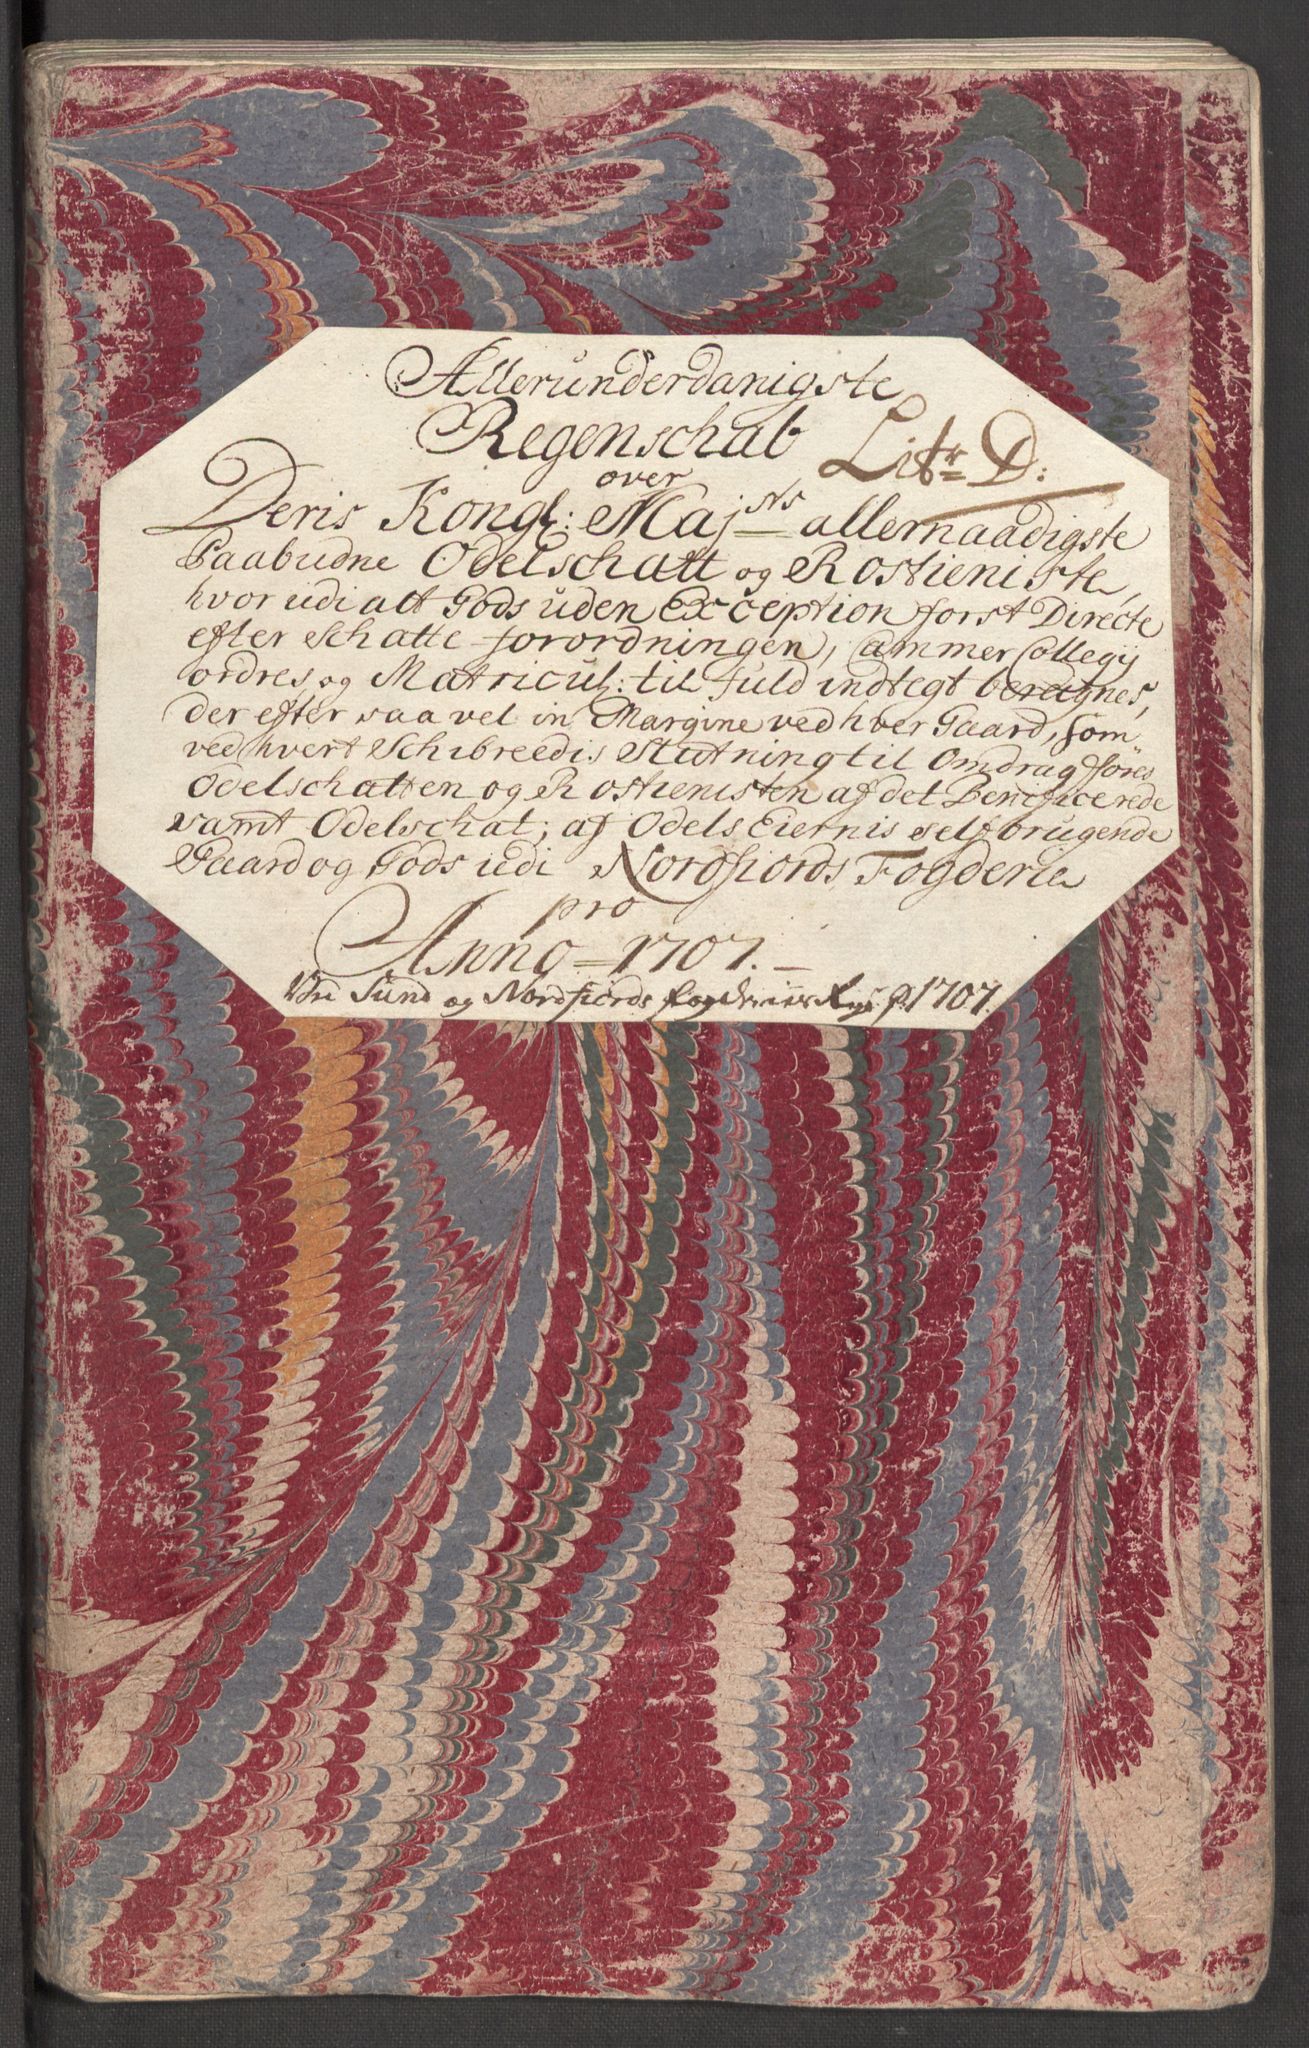 Allerunderdanigste
Regenschab
Litr D:
over
Deris Kongl: Majts allernaadigste
Paabudne Odelschatt og Rostieniste,
hvor udi alt Gods uden Exception forst Directe
efter Schatte-forordningen, Cammer Collegij
ordres, og Matricul: til fuld indtegt beregnes,
der efter saa vel in Margine ved hver Gaard, som
ved hvert Schibreedis Slutning til Omdrag föres
Odelschatten og Rostienisten af det Beneficerede
samt Odelschat; af Odels Eiernis self brugende
Gaard og Gods udi Nordfiords Fogderie
pro
Anno 1707.
Sund og Nordfiords fogderiers p. 1707.